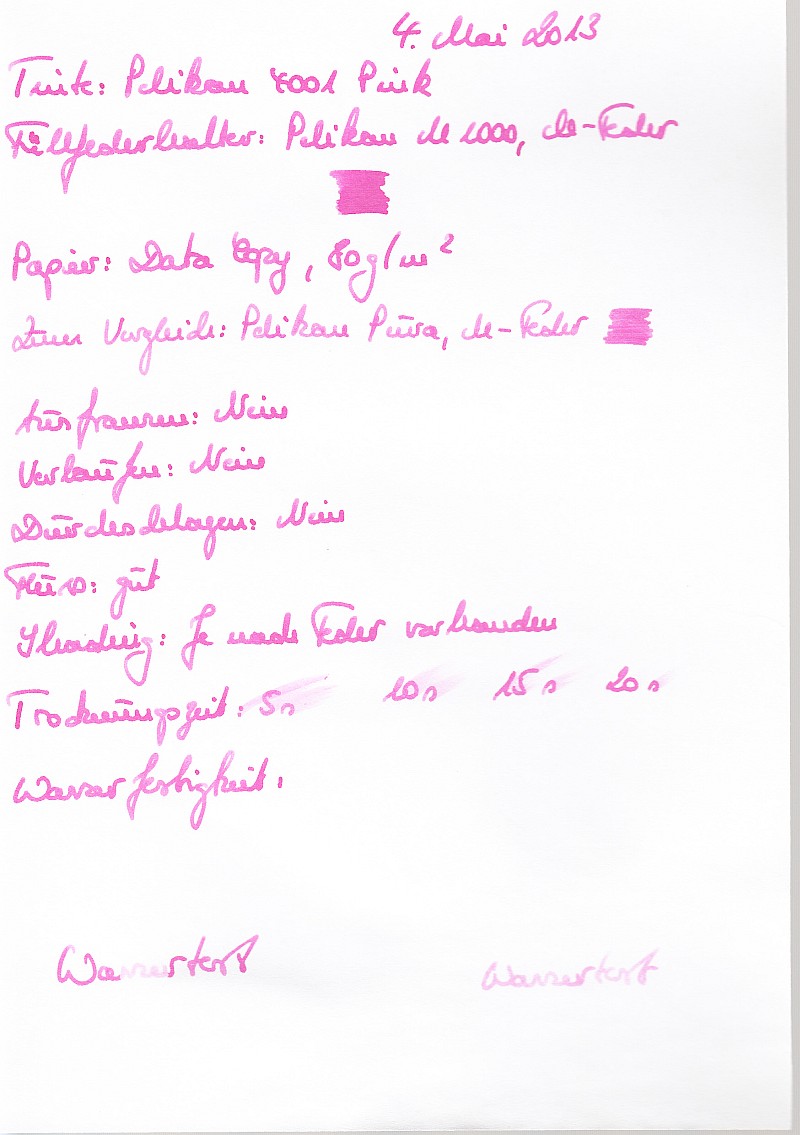 4. Mai 2013
Tinte: Pelikan 4001 Pink
Füllfederhalter: Pelikan M 1000, M-Feder
Papier: Data Copy, 80g/m²
Zum Vergleich: Pelikan Pura, M-Feder
Ausfransen: Nein
Verlaufen: Nein
Durchschlagen: Nein
Fluss: gut
Shading: Je nach Feder vorhanden
Trocknungszeit: 5s 10s 15s 20s
Wasserfestigkeit:
Wassertest Wassertest